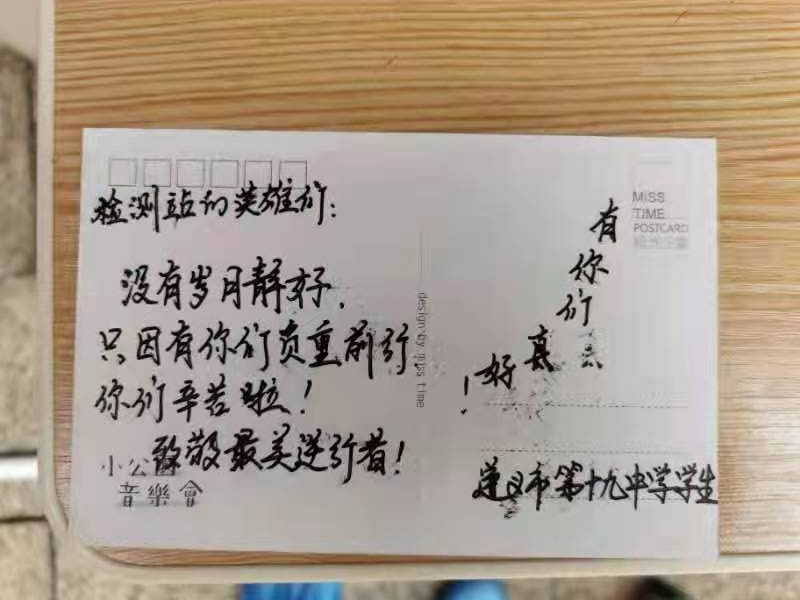 检测站的英雄们：
没有岁月静好，
只因有你们负重前行，
你们辛苦啦！
致敬最美逆行者！
小公
音樂會
design by miss time
MISS
TIME
POSTCARD
有你们真好！
遵义市第十九中学学生